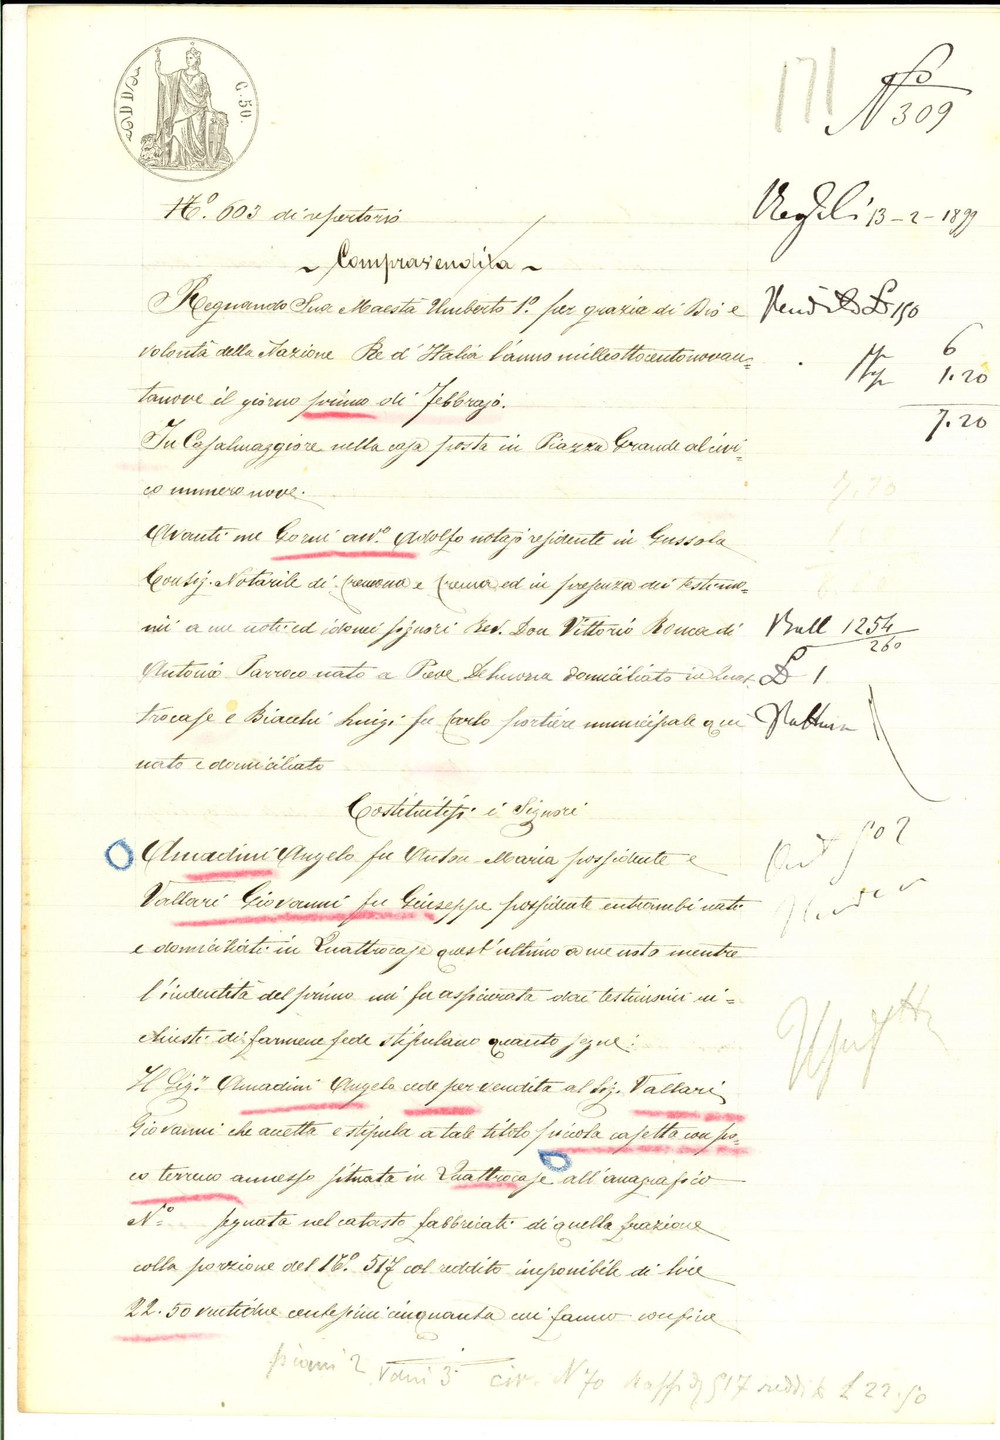 C. 50.
171
No 309
No. 603 di repertorio
13-2-1899
~ Compravendita ~
Regnando Sua Maestà Umberto 1o. per grazia di Dio e
Vendita £ 150
volontà della Nazione Re d'Italia l'anno milleottocentonovan=
6
1.20
tanove il giorno primo di Febbrajo.
7.20
In Casalmaggiore nella casa posta in Piazza Grande al civi=
co numero nove.
Avanti me Gorni avv.o Adolfo notajo residente in Gussola
Consig. Notarile di Cremona e Crema ed in presenza dei testimo=
ni a me noti ed idonei signori Rev. Don Vittorio Ronca di
Boll 1254
260
Antonio Parroco nato a Pieve Delmona domiciliato in Quat=
£ 1
trocase e Biacchi Luigi fu Carlo portiere municipale qui
nato e domiciliato
Costituitisi i Signori
Amadini Angelo fu Anton Maria possidente e
Vallari Giovanni fu Giuseppe possidente entrambi nati
e domiciliati in Quattrocase quest'ultimo a me noto mentre
l'indentità del primo mi fu assicurata dai testimoni ri=
chiesti di farmene fede stipulano quanto segue:
Il Sig.r Amadini Angelo cede per vendita al Sig. Vallari
Giovanni che accetta e stipula a tale titolo piccola casetta con po=
co terreno annesso situata in Quattrocase all'anagrafico
No. segnata nel catasto fabbricati di quella frazione
colla porzione del No. 517 col reddito imponibile di Lire
22.50 ventidue centesimi cinquanta cui fanno confine
piani 2 vani 3 civ. N 70 517 reddito £ 22.50